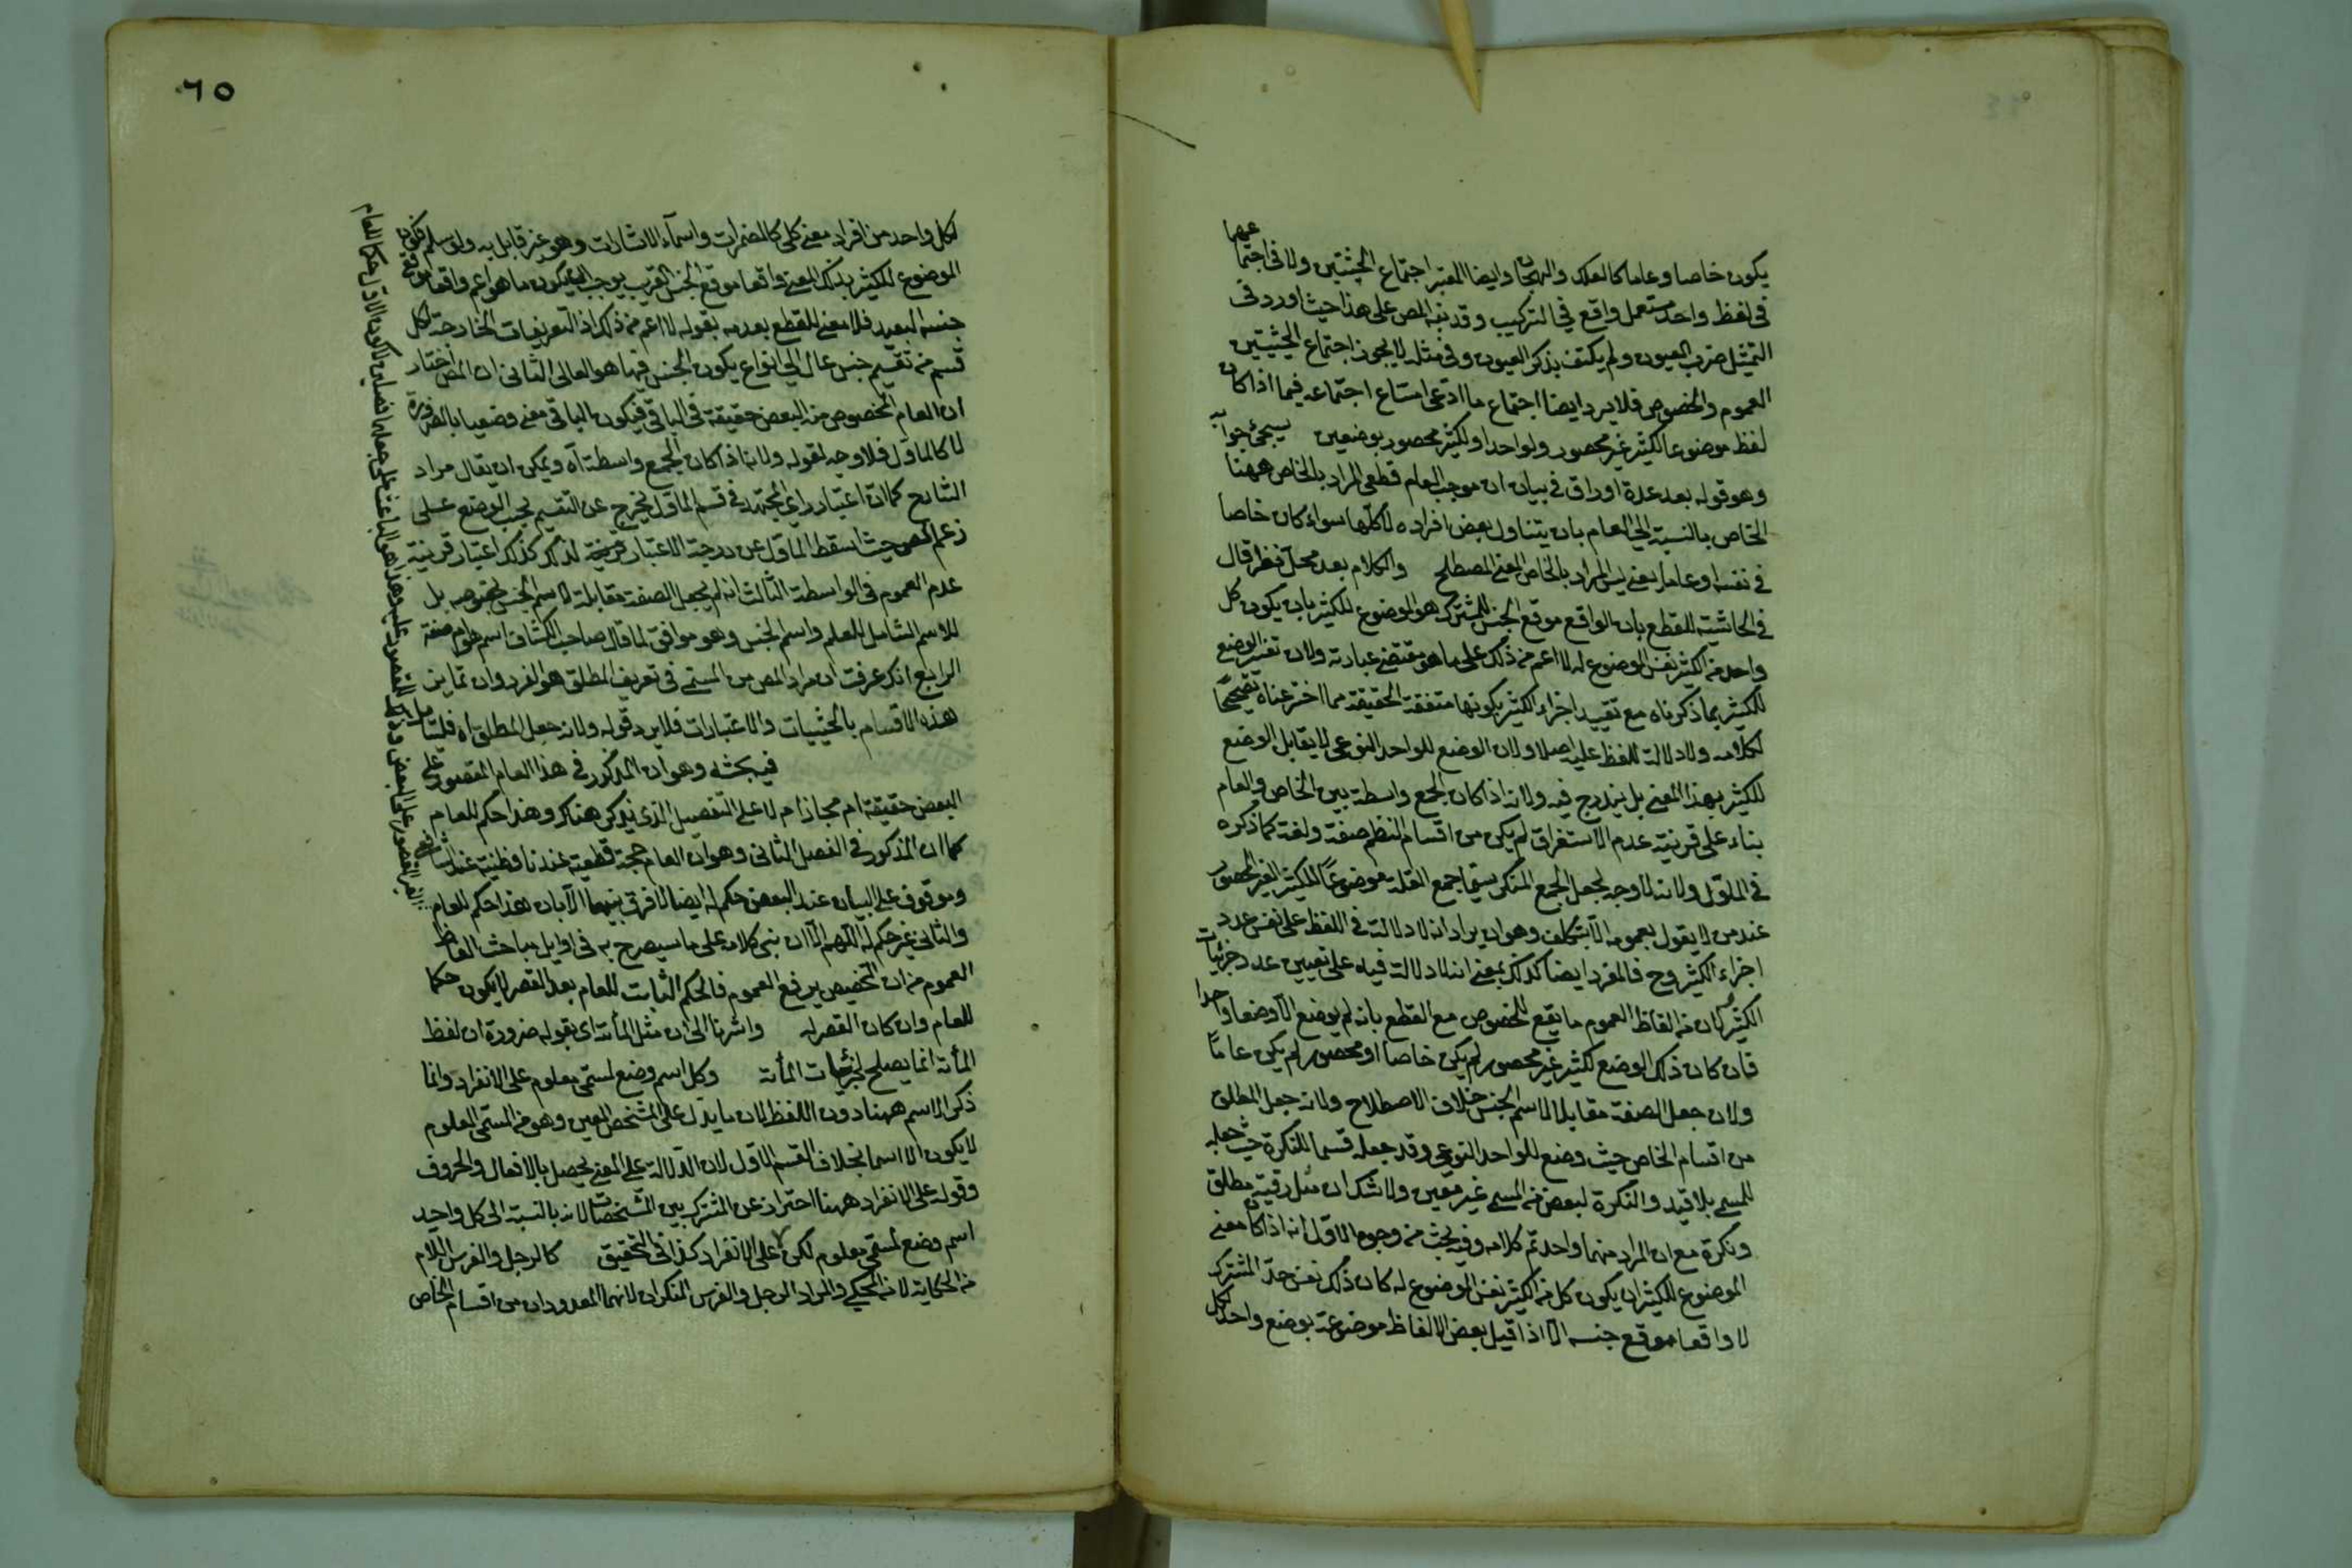 يكون خاصا وعاما كالعلك والهجان وايضا المعتبر اجتماع الحيثيتين ولا في اجتماعهما
في لفظ واحد مستعمل واقع في التركيب وقد نبه المص على هذا حيث اورد في
التمثيل ضرب العيون ولم يكتف بذكر العيون وفي مثله لا يجوز اجتماع الحيثيتين
العموم والخصوص فلا يرد ايضا اجتماع ما ادعى امتناع اجتماعه فيما اذا كان
لفظ موضوعا لكثير غير محصور ولواحد او لكثير محصور بوضعين سيجئ جوابه
وهو قوله بعد عدة اوراق في بيان ان موجب العام قطعي المراد بالخاص ههنا
الخاص بالنسبة الى العام بان يتناول بعض افراده لا كلها سواء كان خاصا
في نفسه او عاما يعني ليس المراد بالخاص المعنى المصطلح والكلام بعد محل نظر قال
في الحاشية للقطع بان الواقع موقع الجنس للمشترك هو الموضوع للكثير بان يكون كل
واحد من الكثير نفس الموضوع له لا اعم من ذلك على ما هو مقتضى عبارته ولان تفسير الوضع
للكثير بما ذكرناه مع تقييد اجزاء الكثير بكونها متفقة الحقيقة مما اخترعناه تصحيحا
لكلامه ولا دلالة للفظ عليه اصلا ولان الوضع للواحد النوعي لا يقابل الوضع
للكثير بهذا المعنى بل يندرج فيه ولانه اذا كان الجمع واسطة بين الخاص والعام
بناء على قرينة عدم الاستغراق لم يكن من اقسام النظم صيغة ولغة كما ذكره
في المأول ولانه لا وجه لجعل الجمع المنكر سيما جمع القلة موضوعا للكثير الغير المحصور
عند من لا يقول بعمومه الا بتكلف وهو ان يراد انه لا دلالة في اللفظ على نفس عدد
اجزاء الكثير وح فالمفرد ايضا كذلك بمعنى انه لا دلالة فيه على تعيين عدد جزئيات
الكثير لان من الفاظ العموم ما يقع للخصوص مع القطع بانه لم يوضع الا وضعا واحدا
فان كان ذلك الوضع لكثير غير محصور لم يكن خاصا او محصور لم يكن عاما
ولان جعل الصفة مقابلا لاسم الجنس خلاف الاصطلاح ولانه جعل المطلق
من اقسام الخاص حيث وضع للواحد النوعي وقد جعله قسيما للنكرة حيث جعله
للمسمى بلا قيد والنكرة لبعض من المسمى غير معين ولا شك ان مثل رقبة مطلق
ونكرة مع ان المراد منهما واحد تم كلامه وفيه بحث من وجوه الاول انه اذا كان معنى
الموضوع للكثير ان يكون كل من الكثير نفس الموضوع له كان ذلك نفس حد المشترك
لا واقعا موقع جنسه الا اذا قيل بعض الالفاظ موضوعة بوضع واحد لكل
٦٥
لكل واحد من افراد معنى كلي كالمضمرات واسماء الاشارات وهو غير قابل به ولو سلم فكون
الموضوع للكثير بذلك المعنى واقعا موقع الجنس القريب يوجب ان يكون ما هو اعم واقعا موقع
جنسه البعيد فلا معنى للقطع بعدمه بقوله لا اعم من ذلك اذ التعريفات الخارجة لكل
قسم من تقسيم جنس عال الى انواع يكون الجنس فيها هو العالى الثاني ان المص اختار
ان العام المخصوص منه البعض حقيقة في الباقي فيكون الباقي معنى وضعيا بالضرورة
لا كالمأول فلا وجه لقوله ولانه اذا كان الجمع واسطة آه ويمكن ان يقال مراد
الشارح كما ان اعتبار راي المجتهد في قسم المأول يخرج عن التقسيم بحسب الوضع على
زعم المص حيث اسقط المأول عن درجة الاعتبار لذلك كذلك اعتبار قرينة
عدم العموم في الواسطة الثالث انه لم يجعل الصفة مقابلة لاسم الجنس بخصوصه بل
للاسم الشامل للعلم واسم الجنس وهو موافق لما قال صاحب الكشاف اسم هو ام صفة
الرابع انك عرفت ان مراد المص من المسمى في تعريف المطلق هو الفرد وان تمايز
هذه الاقسام بالحيثيات والاعتبارات فلا يرد قوله ولانه جعل المطلق آه فليتأمل
فيه بحث وهو ان المذكور في هذا العام المقصور على
البعض حقيقة ام مجاز ام لا على التفصيل الذي يذكر هناك وهذا حكم للعام
كما ان المذكور في الفصل الثاني وهو ان العام حجة قطعية عندنا وظنية عند الشافعي
وموقوف على البيان عند البعض حكم له ايضا لا فرق بينهما الا بان هذا حكم للعام
والثاني غير حكم له اللهم الا ان بنى كلامه على ما سيصرح به في اوايل مباحث الفاظ
العموم من ان التخصيص يرفع العموم فالحكم الثابت للعام بعد القصر لا يكون حكما
للعام وان كان القصر له واشرنا الى ان مثل المأة اي بقوله ضرورة ان لفظ
المأة انما يصلح لجزئيات المأة وكل اسم وضع لمسمى معلوم على الانفراد وانما
ذكر الاسم ههنا دون اللفظ لان ما يدل على المشخص المعين وهو من المسمى المعلوم
لا يكون الا اسما بخلاف القسم الاول لان الدلالة على المعنى يحصل بالافعال والحروف
وقوله على الانفراد ههنا احتراز عن المشترك بين المشخصات لانه بالنسبة الى كل واحد
اسم وضع لمسمى معلوم لكن لا على الانفراد كذا في التحقيق كالرجل والفرس اللام
من الحكاية لا من المحكي والمراد الرجل والفرس المنكران لانهما المعدودان من اقسام الخاص